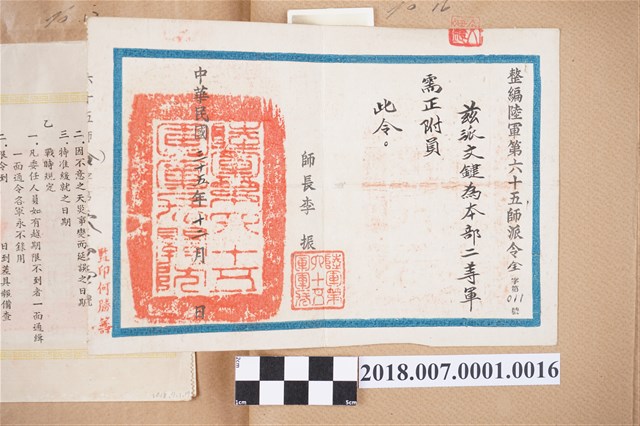 整編陸軍第六十五師派令
字第011號
茲派文鍵為本部二等軍
需正附員
此令。
師長李 振
中華民國三十五年十二月 日
二、因不意之天災事變而延誤之日期
三、特准緩就之日期
乙 戰時規定
一、凡委任人員如有趕期限不到者一面通緝
一面通令各軍永不錄用
監印何勝善
2018.007.0001.0016
1cm
5cm